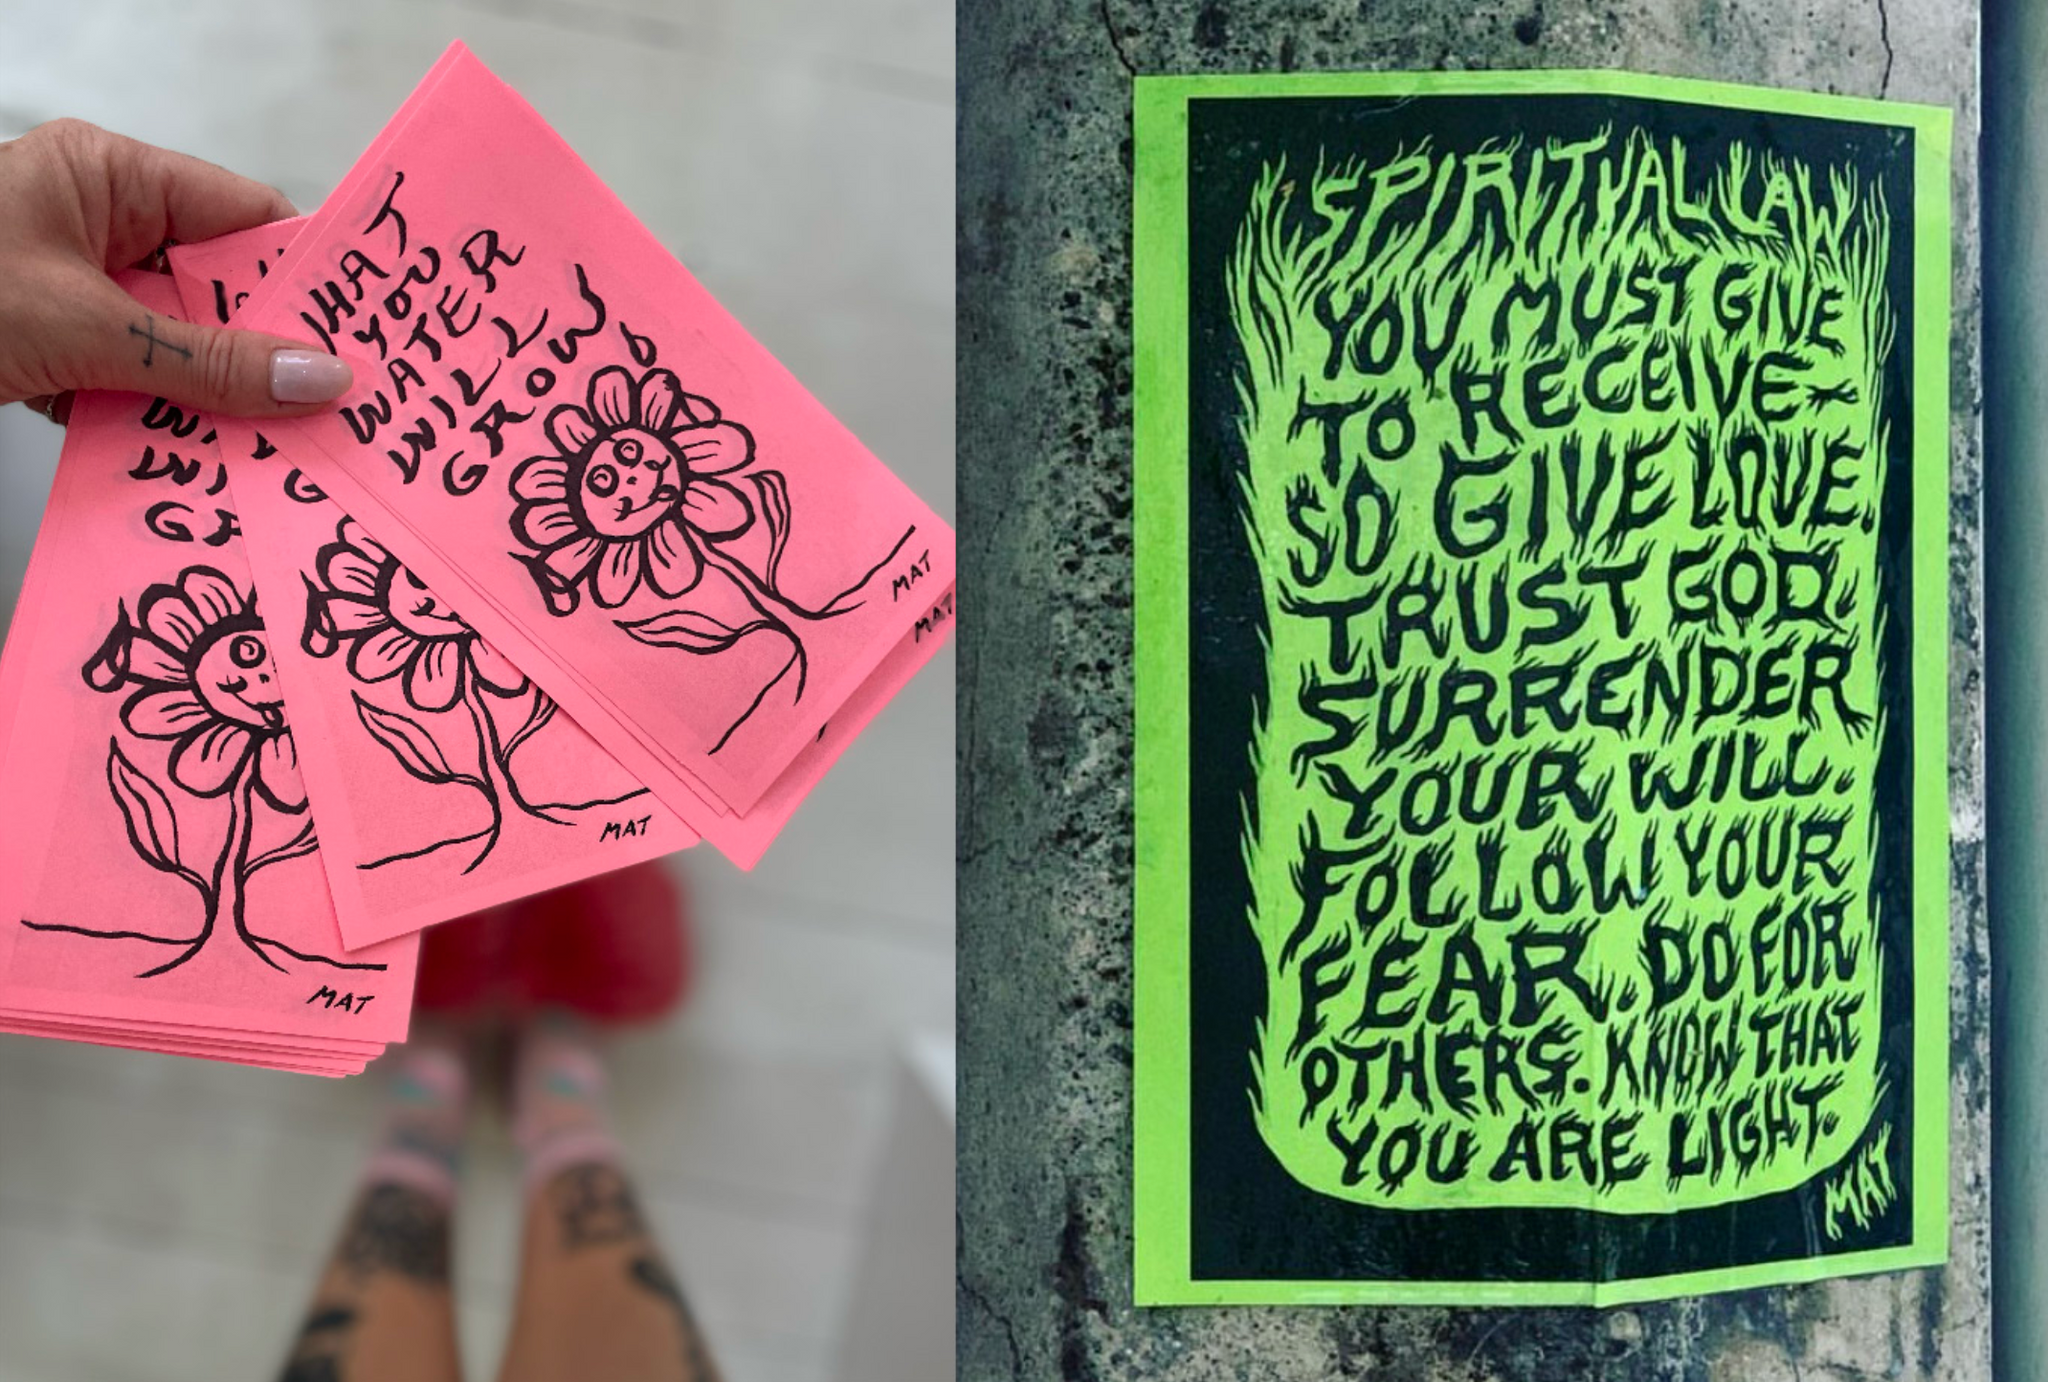 WHAT
YOU
WATER
WILL
GROW
MAT
MAT
WI
GR
G
MAT
MAT
SPIRITUAL LAW
YOU MUST GIVE
TO RECEIVE-
SO GIVE LOVE.
TRUST GOD
SURRENDER
YOUR WILL.
FOLLOW YOUR
FEAR. DO FOR
OTHERS. KNOW THAT
YOU ARE LIGHT.
MAT